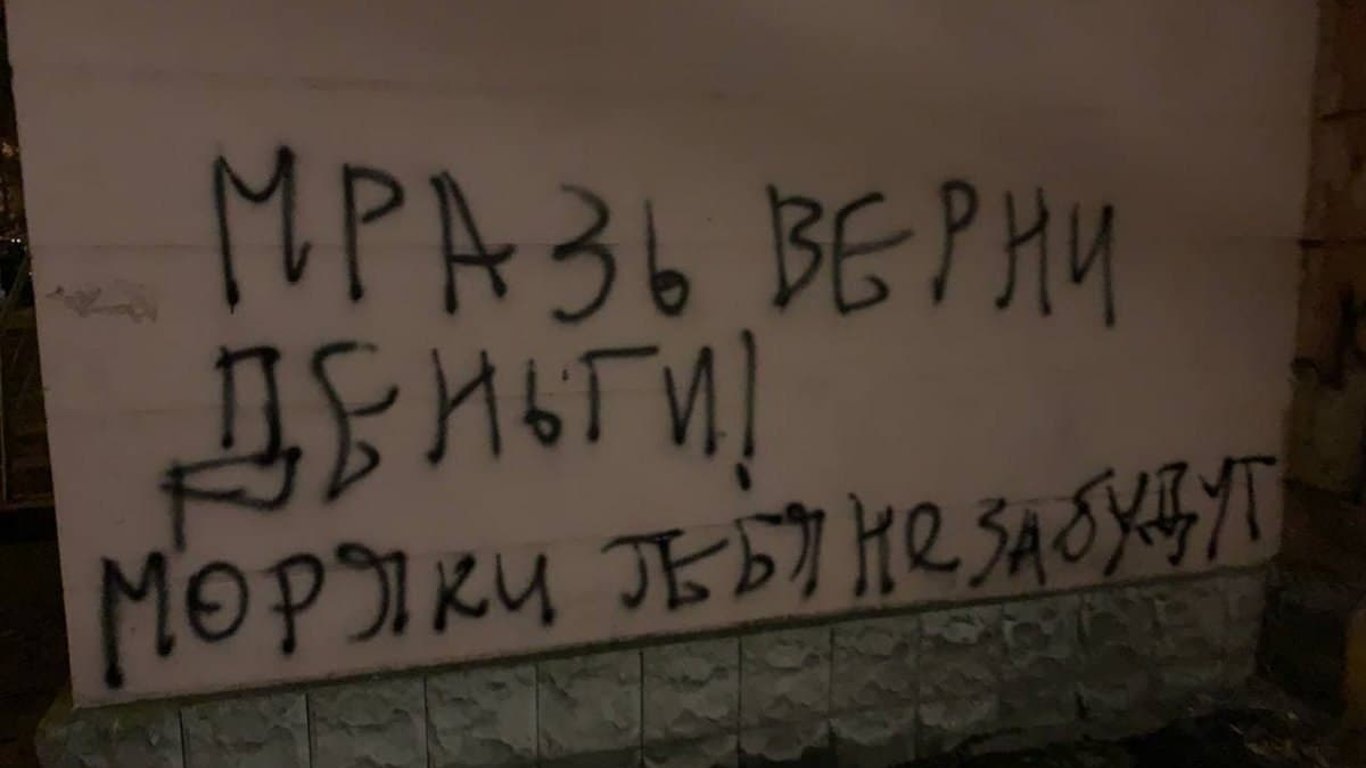 МРАЗЬ ВЕРНИ
ДЕНЬГИ!
МОРЯКИ ТЕБЯ НЕ ЗАБУДУТ